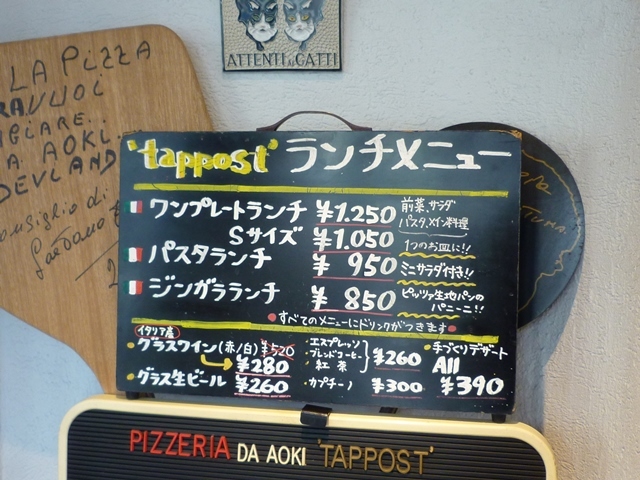 ATTENTI AI GATTI
LA PIZZA
A. AOKI
'tappost' ランチメニュー
ワンプレートランチ ¥1.250 前菜、サラダ
パスタ、メイン料理
Sサイズ ¥1.050 1つのお皿に!!
パスタランチ ¥950 ミニサラダ付き!!
ジンガラランチ ¥850 ピッツァ生地パンの
パニーニ!!
すべてのメニューにドリンクがつきます
イタリア産
グラスワイン(赤/白) ¥520
¥280
グラス生ビール ¥260
・エスプレッソ
・ブレンドコーヒー
・紅茶
¥260
・カプチーノ ¥300
手づくりデザート
All
¥390
PIZZERIA DA AOKI 'TAPPOST'